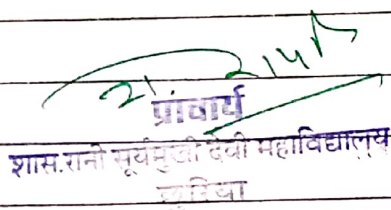 प्राचार्य
शास.रानी सूर्यमुखी देवी महाविद्यालय
छुरिया